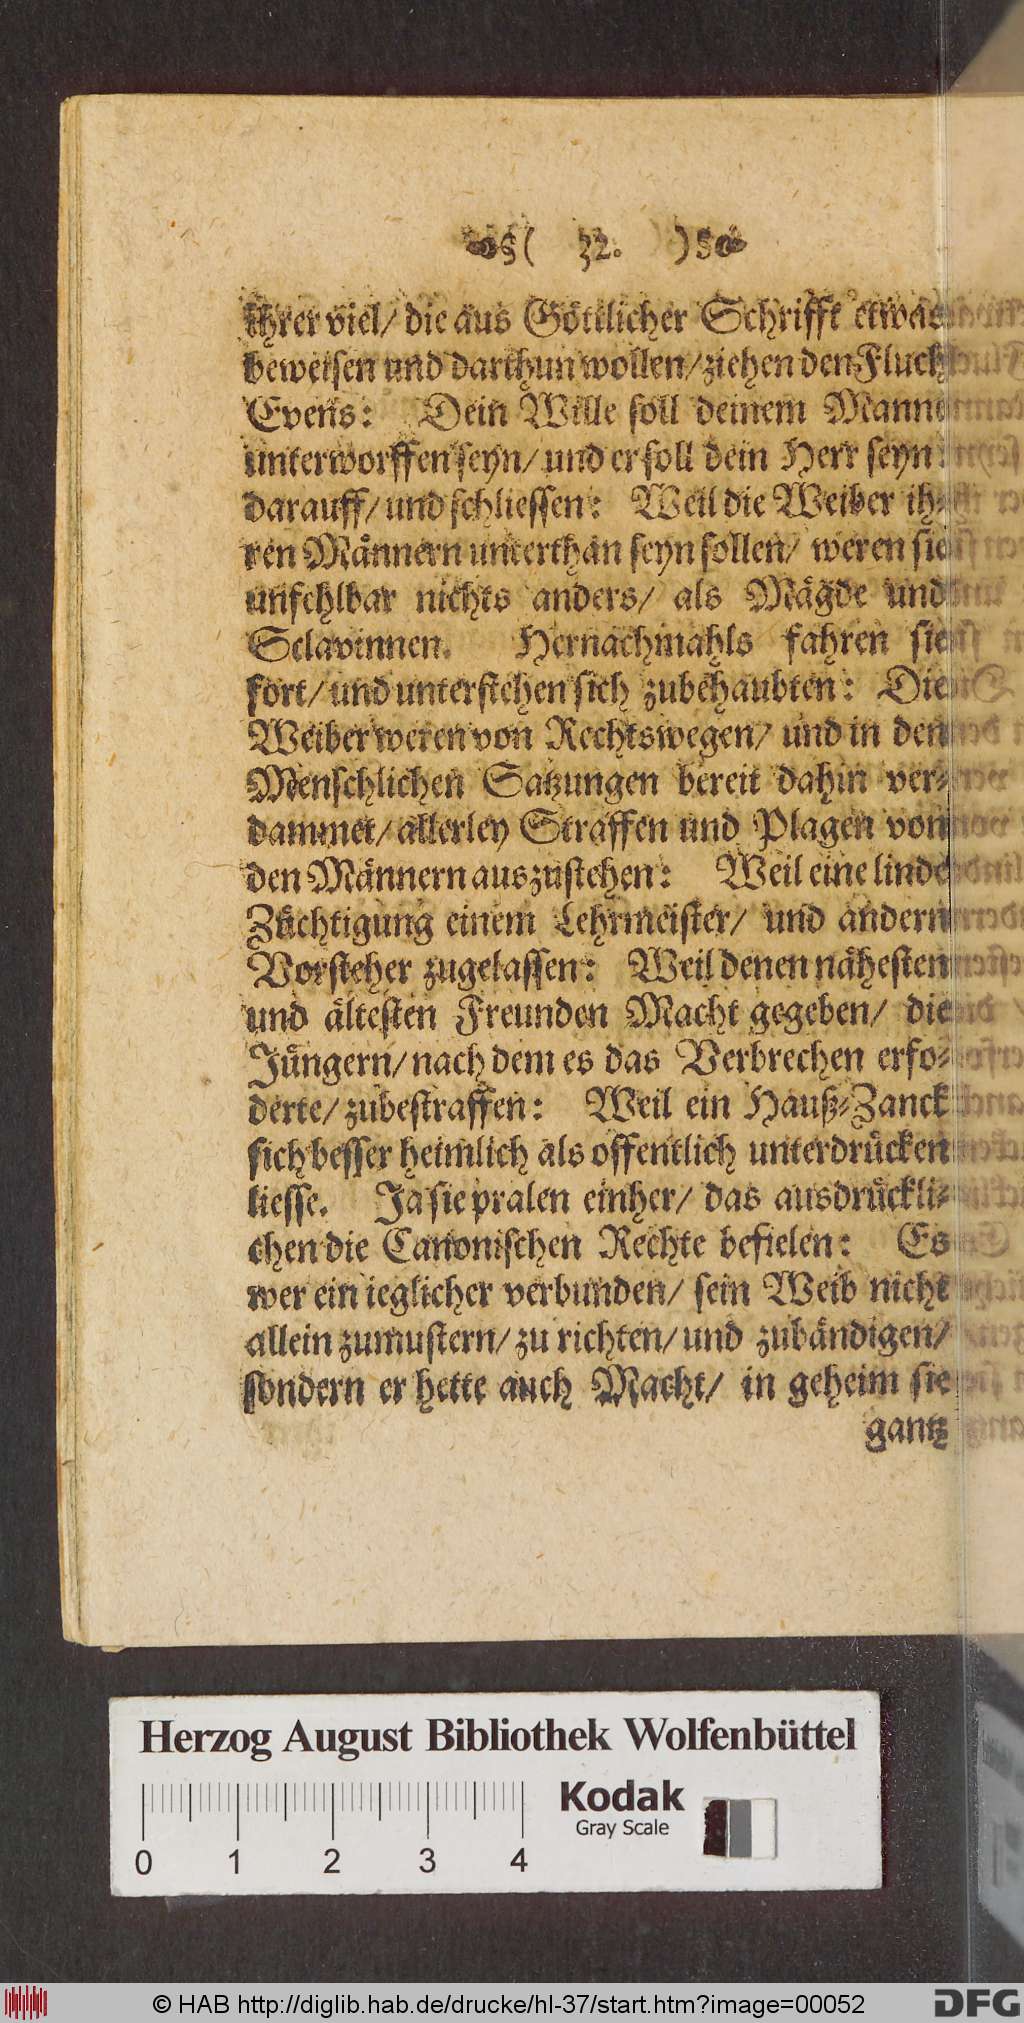 ( 32. )
ihrer viel/ die aus Göttlicher Schrifft etwas
beweisen und darthun wollen/ ziehen den Fluch
Evens: Dein Wille soll deinem Manne
unterworffen seyn/ und er soll dein Herr seyn:
darauff/ und schliessen: Weil die Weiber ih-
ren Männern unterthan seyn sollen/ weren sie
unfehlbar nichts anders/ als Mägde und
Sclavinnen. Hernachmahls fahren sie
fort/ und unterstehen sich zubehaubten: Die
Weiber weren von Rechtswegen/ und in den
Menschlichen Satzungen bereit dahin ver-
dammet/ allerley Straffen und Plagen von
den Männern auszustehen: Weil eine linde
Züchtigung einem Lehrmeister/ und andern
Vorsteher zugelassen: Weil denen nähesten
und ältesten Freunden Macht gegeben/ die
Jüngern/ nach dem es das Verbrechen erfo-
derte/ zubestraffen: Weil ein Hauß-Zanck
sich besser heimlich als offentlich unterdrücken
liesse. Ja sie pralen einher/ das ausdrückli-
chen die Canonischen Rechte befielen: Es
wer ein ieglicher verbunden/ sein Weib nicht
allein zumustern/ zu richten/ und zubändigen/
sondern er hette auch Macht/ in geheim sie
gantz
Herzog August Bibliothek Wolfenbüttel
Kodak
Gray Scale
0 1 2 3 4
© HAB http://diglib.hab.de/drucke/hl-37/start.htm?image=00052
DFG